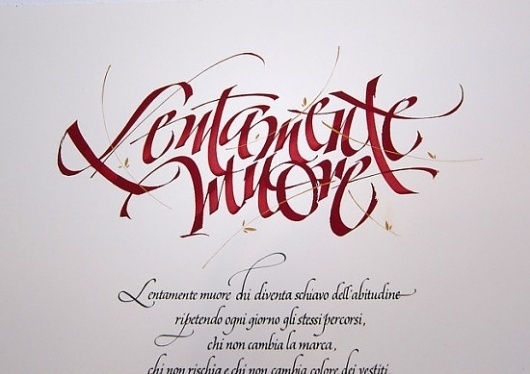 Lentamente
muore
Lentamente muore chi diventa schiavo dell'abitudine
ripetendo ogni giorno gli stessi percorsi,
chi non cambia la marca,
chi non rischia e chi non cambia colore dei vestiti